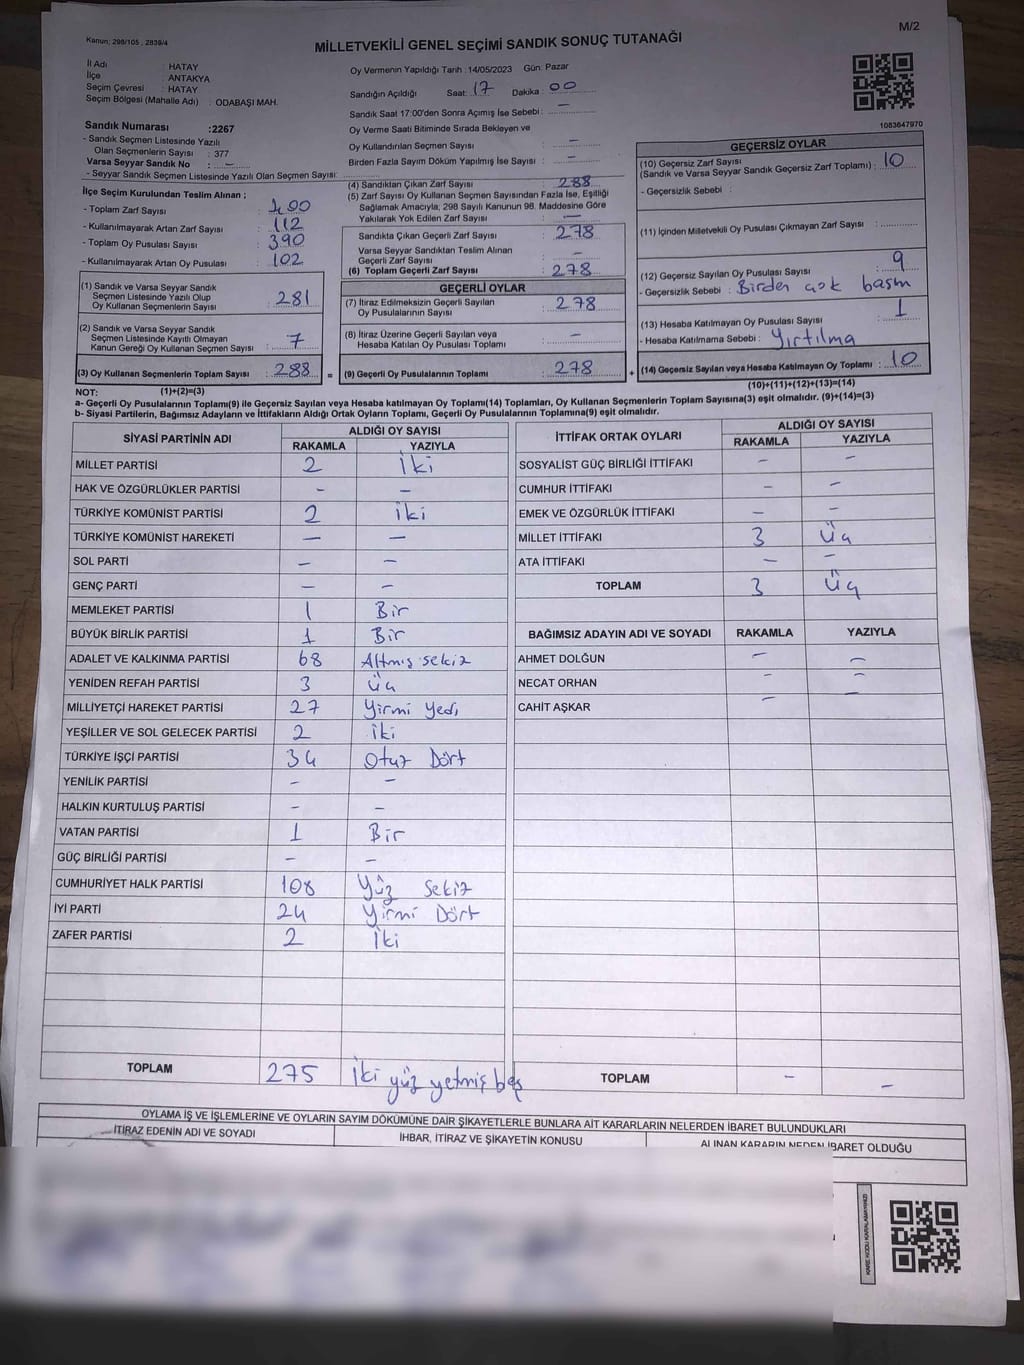 M/2
Kanun: 298/105 , 2839/4
MİLLETVEKİLİ GENEL SEÇİMİ SANDIK SONUÇ TUTANAĞI
İl Adı : HATAY
İlçe : ANTAKYA
Seçim Çevresi : HATAY
Seçim Bölgesi (Mahalle Adı) : ODABAŞI MAH.
Oy Vermenin Yapıldığı Tarih :14/05/2023 Gün: Pazar
Sandığın Açıldığı Saat: 17 Dakika : 00
Sandık Saat 17:00'den Sonra Açımış İse Sebebi : –
Oy Verme Saati Bitiminde Sırada Bekleyen ve
Oy Kullandırılan Seçmen Sayısı : –
Birden Fazla Sayım Döküm Yapılmış İse Sayısı : –
1083647970
Sandık Numarası :2267
- Sandık Seçmen Listesinde Yazılı
Olan Seçmenlerin Sayısı : 377
Varsa Seyyar Sandık No : –
- Seyyar Sandık Seçmen Listesinde Yazılı Olan Seçmen Sayısı:
İlçe Seçim Kurulundan Teslim Alınan :
- Toplam Zarf Sayısı : 400
- Kullanılmayarak Artan Zarf Sayısı : 112
- Toplam Oy Pusulası Sayısı : 390
- Kullanılmayarak Artan Oy Pusulası : 102
(1) Sandık ve Varsa Seyyar Sandık
Seçmen Listesinde Yazılı Olup
Oy Kullanan Seçmenlerin Sayısı : 281
(2) Sandık ve Varsa Seyyar Sandık
Seçmen Listesinde Kayıtlı Olmayan
Kanun Gereği Oy Kullanan Seçmen Sayısı : 7
(3) Oy Kullanan Seçmenlerin Toplam Sayısı : 288 =
(4) Sandıktan Çıkan Zarf Sayısı : 288
(5) Zarf Sayısı Oy Kullanan Seçmen Sayısından Fazla İse, Eşitliği
Sağlamak Amacıyla, 298 Sayılı Kanunun 98. Maddesine Göre
Yakılarak Yok Edilen Zarf Sayısı : –
Sandıkta Çıkan Geçerli Zarf Sayısı : 278
Varsa Seyyar Sandıktan Teslim Alınan
Geçerli Zarf Sayısı : –
(6) Toplam Geçerli Zarf Sayısı : 278
GEÇERLİ OYLAR
(7) İtiraz Edilmeksizin Geçerli Sayılan
Oy Pusulalarının Sayısı : 278
(8) İtiraz Üzerine Geçerli Sayılan veya
Hesaba Katılan Oy Pusulası Toplamı : –
(9) Geçerli Oy Pusulalarının Toplamı : 278 +
GEÇERSİZ OYLAR
(10) Geçersiz Zarf Sayısı
(Sandık ve Varsa Seyyar Sandık Geçersiz Zarf Toplamı) : 10
- Geçersizlik Sebebi :
(11) İçinden Milletvekili Oy Pusulası Çıkmayan Zarf Sayısı :
(12) Geçersiz Sayılan Oy Pusulası Sayısı : 9
- Geçersizlik Sebebi : Birden çok basım
(13) Hesaba Katılmayan Oy Pusulası Sayısı : 1
- Hesaba Katılmama Sebebi : Yırtılma
(14) Geçersiz Sayılan veya Hesaba Katılmayan Oy Toplamı : 10
NOT: (1)+(2)=(3) (10)+(11)+(12)+(13)=(14)
a- Geçerli Oy Pusulalarının Toplamı(9) ile Geçersiz Sayılan veya Hesaba katılmayan Oy Toplamı(14) Toplamları, Oy Kullanan Seçmenlerin Toplam Sayısına(3) eşit olmalıdır. (9)+(14)=(3)
b- Siyasi Partilerin, Bağımsız Adayların ve İttifakların Aldığı Ortak Oyların Toplamı, Geçerli Oy Pusulalarının Toplamına(9) eşit olmalıdır.
SİYASİ PARTİNİN ADI ALDIĞI OY SAYISI
RAKAMLA YAZIYLA
MİLLET PARTİSİ 2 İki
HAK VE ÖZGÜRLÜKLER PARTİSİ – –
TÜRKİYE KOMÜNİST PARTİSİ 2 İki
TÜRKİYE KOMÜNİST HAREKETİ – –
SOL PARTİ – –
GENÇ PARTİ – –
MEMLEKET PARTİSİ 1 Bir
BÜYÜK BİRLİK PARTİSİ 1 Bir
ADALET VE KALKINMA PARTİSİ 68 Altmış sekiz
YENİDEN REFAH PARTİSİ 3 Üç
MİLLİYETÇİ HAREKET PARTİSİ 27 Yirmi Yedi
YEŞİLLER VE SOL GELECEK PARTİSİ 2 İki
TÜRKİYE İŞÇİ PARTİSİ 34 Otuz Dört
YENİLİK PARTİSİ – –
HALKIN KURTULUŞ PARTİSİ – –
VATAN PARTİSİ 1 Bir
GÜÇ BİRLİĞİ PARTİSİ – –
CUMHURİYET HALK PARTİSİ 108 Yüz Sekiz
İYİ PARTİ 24 Yirmi Dört
ZAFER PARTİSİ 2 İki
TOPLAM 275 İki yüz yetmiş beş
İTTİFAK ORTAK OYLARI ALDIĞI OY SAYISI
RAKAMLA YAZIYLA
SOSYALİST GÜÇ BİRLİĞİ İTTİFAKI – –
CUMHUR İTTİFAKI – –
EMEK VE ÖZGÜRLÜK İTTİFAKI – –
MİLLET İTTİFAKI 3 Üç
ATA İTTİFAKI – –
TOPLAM 3 Üç
BAĞIMSIZ ADAYIN ADI VE SOYADI RAKAMLA YAZIYLA
AHMET DOLĞUN – –
NECAT ORHAN – –
CAHİT AŞKAR – –
TOPLAM – –
OYLAMA İŞ VE İŞLEMLERİNE VE OYLARIN SAYIM DÖKÜMÜNE DAİR ŞİKAYETLERLE BUNLARA AİT KARARLARIN NELERDEN İBARET BULUNDUKLARI
İTİRAZ EDENİN ADI VE SOYADI İHBAR, İTİRAZ VE ŞİKAYETİN KONUSU ALINAN KARARIN NEDEN İBARET OLDUĞU